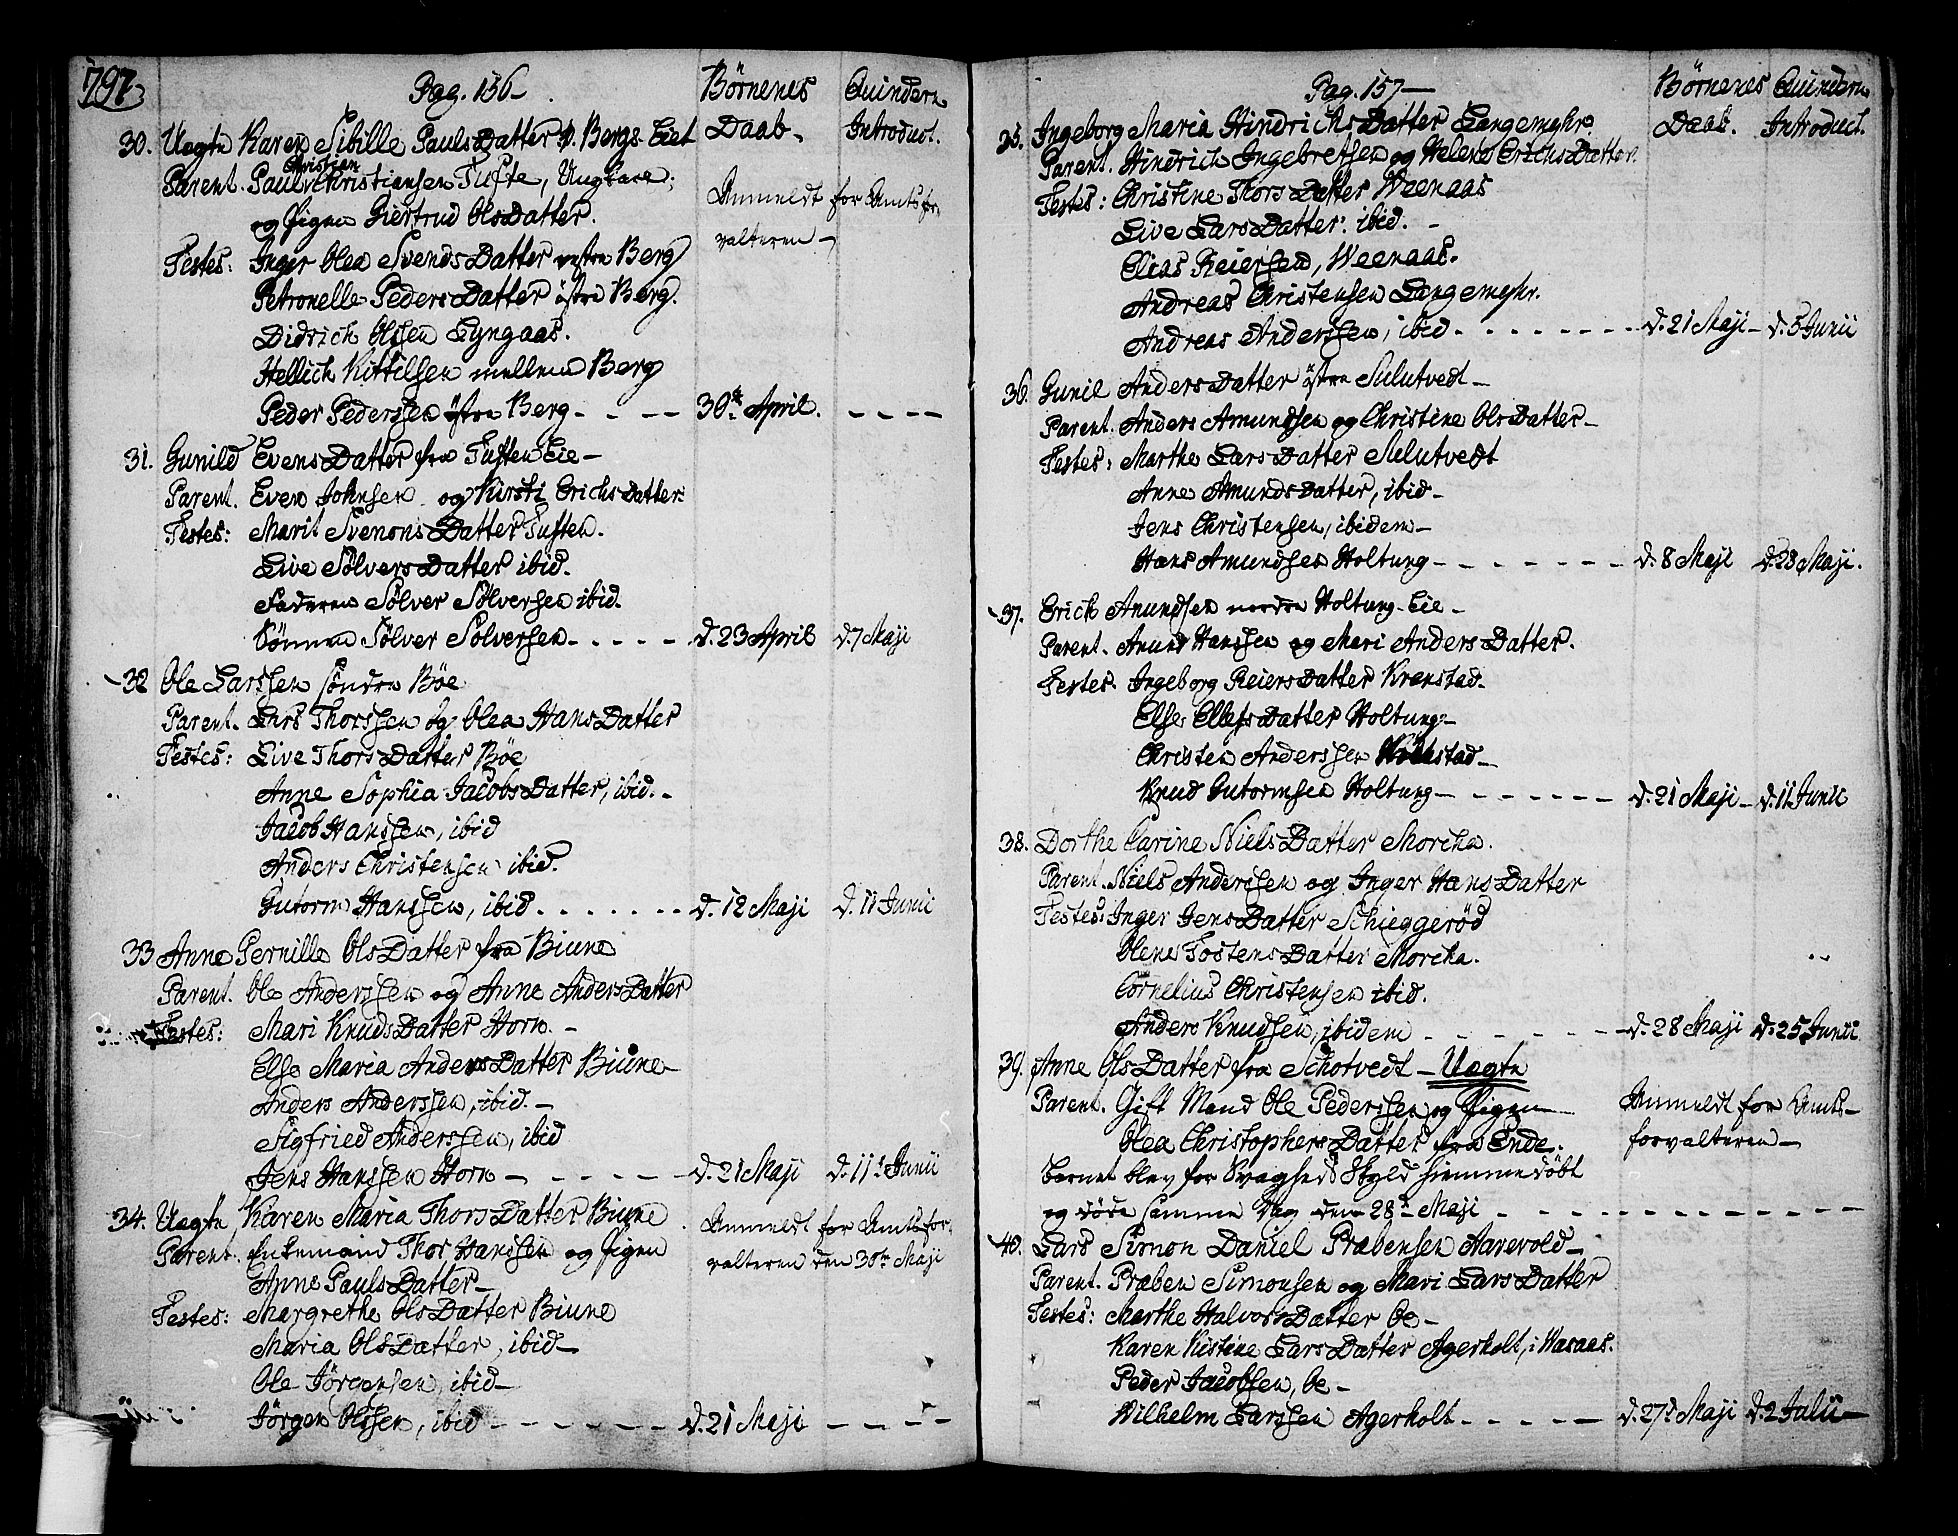 1797
Pag. 156
Börnenes Daab
Quindern Introduct.
30. Uægte Karen Sibille PaulsDatter v. Bergs Eiet
Parent. Paul Christian Christiansen Tufte, Ungkare;
og Pigen Giertrud OlsDatter.
Anmeldt for Amtsfor
valteren
Testes: Inger Olea SvendsDatter vestre Berg
Petronelle PedersDatter östre Berg.
Didrich Olssen Lyngaas.
Hellich Kittilsen mellem Berg
Peder Pederssen östre Berg - - - - 30te April. - - - -
31. Gunild EvensDatter fra Tuften Eie
Parent. Even Johnsen og Kirsti ErichsDatter
Testes: Marit SvenonsDatter Tuften.
Live SölversDatter ibid.
Faderen Sölver Sölversen ibid.
Sönnen Sölver Sölversen - - - - d. 23 April d. 7 Maji
32 Ole Larssen söndre Böe
Parent. Lars Thorssen og Olea HansDatter
Testes: Live ThorsDatter Böe
Anne Sophia JacobsDatter, ibid.
Jacob Hanssen, ibid
Anders Christensen ibid.
Gutorm Hanssen, ibid - - - - d. 12 Maji d. 11 Junii
33 Anne Pernille OlsDatter fra Biune
Parent. Ole Anderssen og Anne AndersDatter
Testes: Mari KnudsDatter Horn.
Else Maria AndersDatter Biune
Anders Anderssen, ibid.
Sigfried Anderssen, ibid
Jens Hanssen Horn - - - - d. 21 Maji d. 11t Junii
34. Uægte Karen Maria ThorsDatter Biune
Parent. Enkemand Thor Hanssen og Pigen
Anne PaulsDatter
Anmeldt for Amtsfor
valteren den 30te Maji
Testes: Margrethe OlsDatter Biune
Maria OlsDatter, ibid
Ole Jörgensen, ibid
Jörgen Olssen, ibid - - - - d. 21 Maji - - - -
Pag. 157
Börnenes Daab.
Quindern Introduct.
35. Ingeborg Maria HindrichsDatter Langemyhr.
Parent. Hindrich Ingebretsen og Helene ErichsDatter.
Testes: Christine ThorsDatter Weenaas
Live LarsDatter ibid.
Elias Reiersen, Weenaas.
Andreas Christensen Langemyhr.
Andreas Anderssen, ibid - - - - d. 21 Maji d. 5 Junii
36. Gunil AndersDatter östre Sulutvedt
Parent. Anders Amundsen og Christine OlsDatter
Testes: Marthe LarsDatter Sulutvedt
Anne AmundsDatter, ibid
Jens Christensen, ibidem
Hans Amundsen Holtung - - - - d. 8 Maji d. 28 Maji.
37. Erich Anundsen nordre Holtung Eie
Parent. Anund Hanssen og Mari AndersDatter.
Testes. Ingeborg ReiersDatter Kronstad
Else EllefsDatter Holtung
Christen Anderssen
Knud Gutormsen Holtung - - - - d. 21 Maji d. 11 Junii
38. Dorthe Carine NielsDatter Morcka.
Parent. Niels Anderssen og Inger HansDatter
Testes: Inger JensDatter Schieggeröd
Olene TostensDatter Morcka.
Cornelius Christensen ibid.
Anders Knudsen, ibidem - - - - d. 28 Maji d. 25 Junii
39. Anne OlsDatter fra Schotvedt Uægte
Parent. Gift Mand Ole Pederssen og Pigen
Olea ChristophersDatter fra Ende.
Anmeldt for Amts
forvalteren
Barnet blev for Svagheds Skyld hiemmedöbt
og döde samme Dag den 28de Maji - - - -
40. Lars Simon Daniel Præbensen Aarevold
Parent. Præben Simonsen og Mari LarsDatter
Testes: Marthe HalvorsDatter Oe
Karen Kistine LarsDatter Agerholt, i Wasaas.
Peder Jacobsen, Oe
Wilhelm Larssen Agerholt - - - - d. 27d Maji d. 2 Julii